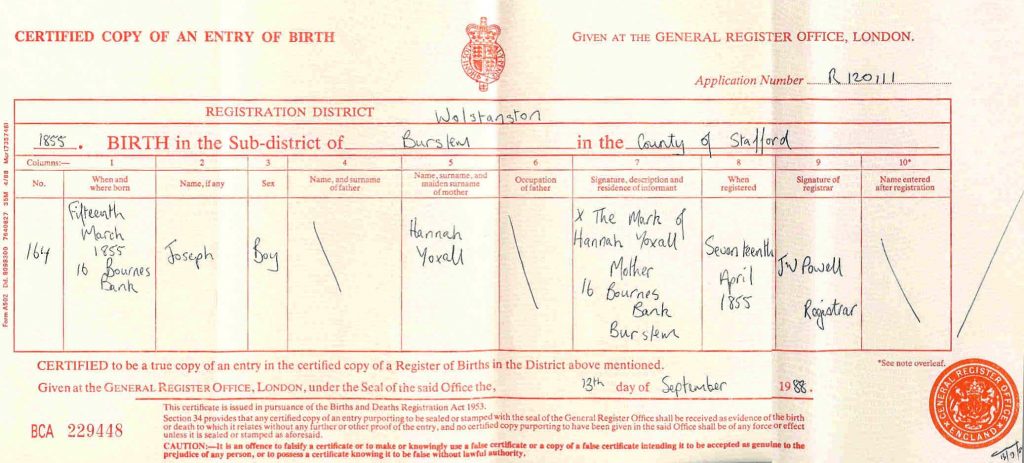 CERTIFIED COPY OF AN ENTRY OF BIRTH
GIVEN AT THE GENERAL REGISTER OFFICE, LONDON.
Application Number R 120111
REGISTRATION DISTRICT Wolstanston
1855. BIRTH in the Sub-district of Burslem in the County of Stafford
Columns:— 1 2 3 4 5 6 7 8 9 10*
No. When and where born Name, if any Sex Name, and surname of father Name, surname, and maiden surname of mother Occupation of father Signature, description and residence of informant When registered Signature of registrar Name entered after registration
164
Fifteenth
March
1855
16 Bournes
Bank
Joseph
Boy
Hannah
Yoxall
X The Mark of
Hannah Yoxall
Mother
16 Bournes
Bank
Burslem
Seventeenth
April
1855
JW Powell
Registrar
CERTIFIED to be a true copy of an entry in the certified copy of a Register of Births in the District above mentioned.
*See note overleaf.
Given at the GENERAL REGISTER OFFICE, LONDON, under the Seal of the said Office the, 13th day of September 1988.
This certificate is issued in pursuance of the Births and Deaths Registration Act 1953.
Section 34 provides that any certified copy of an entry purporting to be sealed or stamped with the seal of the General Register Office shall be received as evidence of the birth
or death to which it relates without any further or other proof of the entry, and no certified copy purporting to have been given in the said Office shall be of any force or effect
unless it is sealed or stamped as aforesaid.
CAUTION:—It is an offence to falsify a certificate or to make or knowingly use a false certificate or a copy of a false certificate intending it to be accepted as genuine to the
prejudice of any person, or to possess a certificate knowing it to be false without lawful authority.
BCA 229448
GENERAL REGISTER OFFICE
ENGLAND